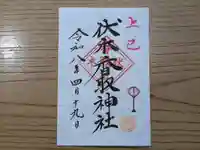 上巳
伏木香取神社
令和八年四月十九日